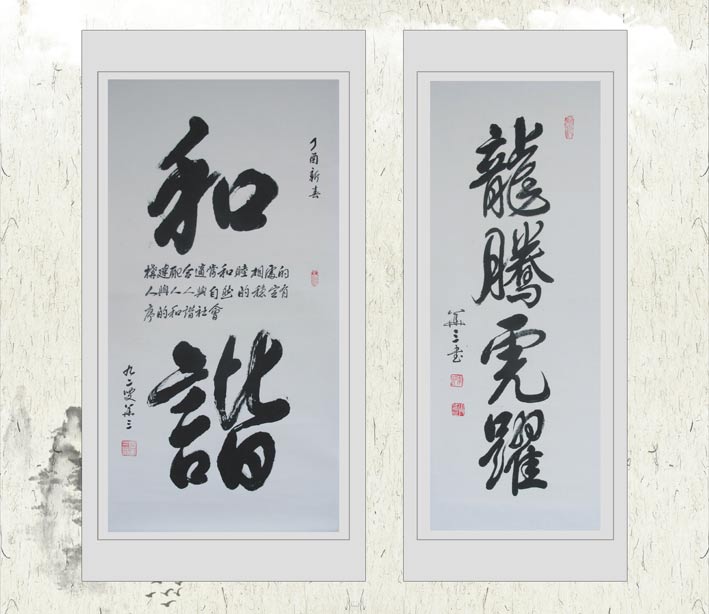 丁酉新春
和
構建配合適當和睦相處的
人與人人與自然的穩定有
序的和諧社會
諧
九二叟華三
龍騰虎躍
華三書